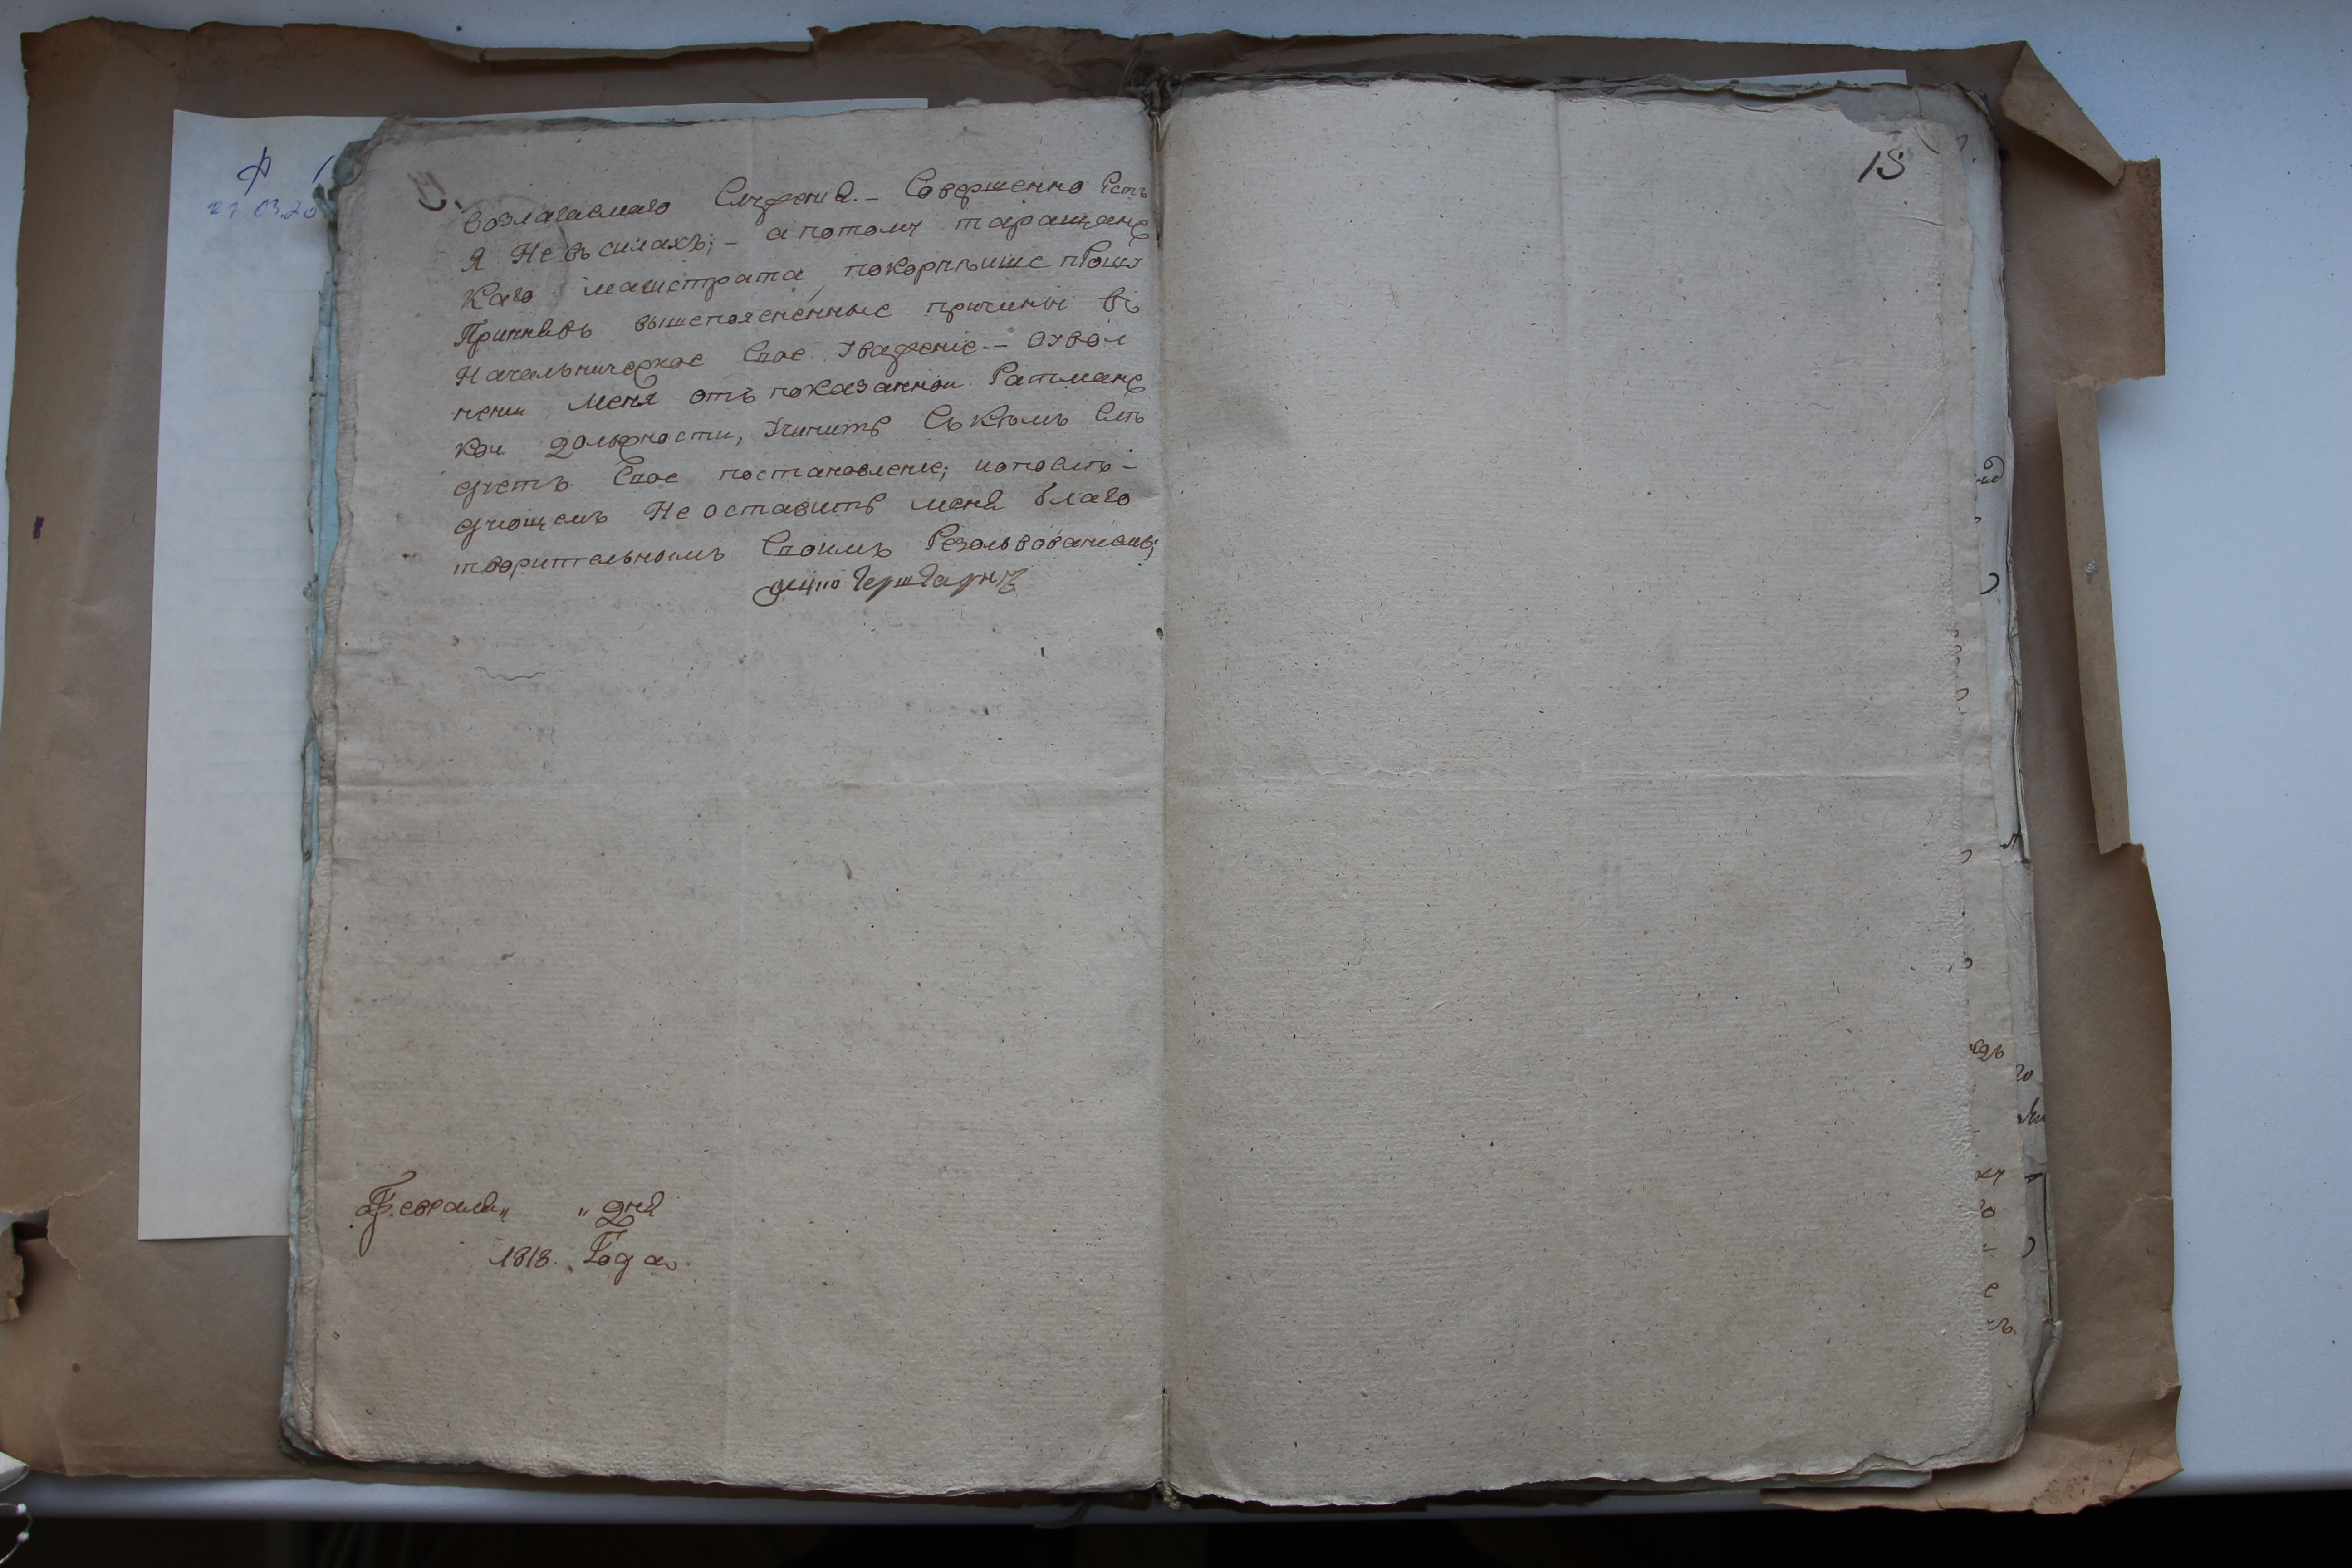 возлагаемаго Служения. – Совершенно Есть
Я Не въ силахъ; – а потому таращанс
каго магистрата, покорнѣише прошу
Принявъ вышепоясненные причины въ
Начальническое Свое Уважение – Отвол
нении меня отъ показаннои Ратманс
кои должности, Учинить Съ кѣмъ Слѣ
дуетъ Свое постановление; и о послѣ-
дующемъ Не оставить меня благо
творительномъ Своимъ Резольвованиемъ;
Февраля „ „ дня
1818. Года
18
Ф 1
21.03.20